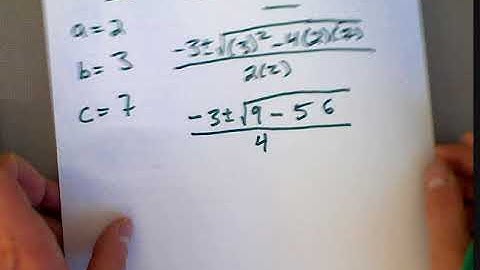 a=2
b=3
c=7
-3±√(3)²-4(2)(7)
2(2)
-3±√9-56
4